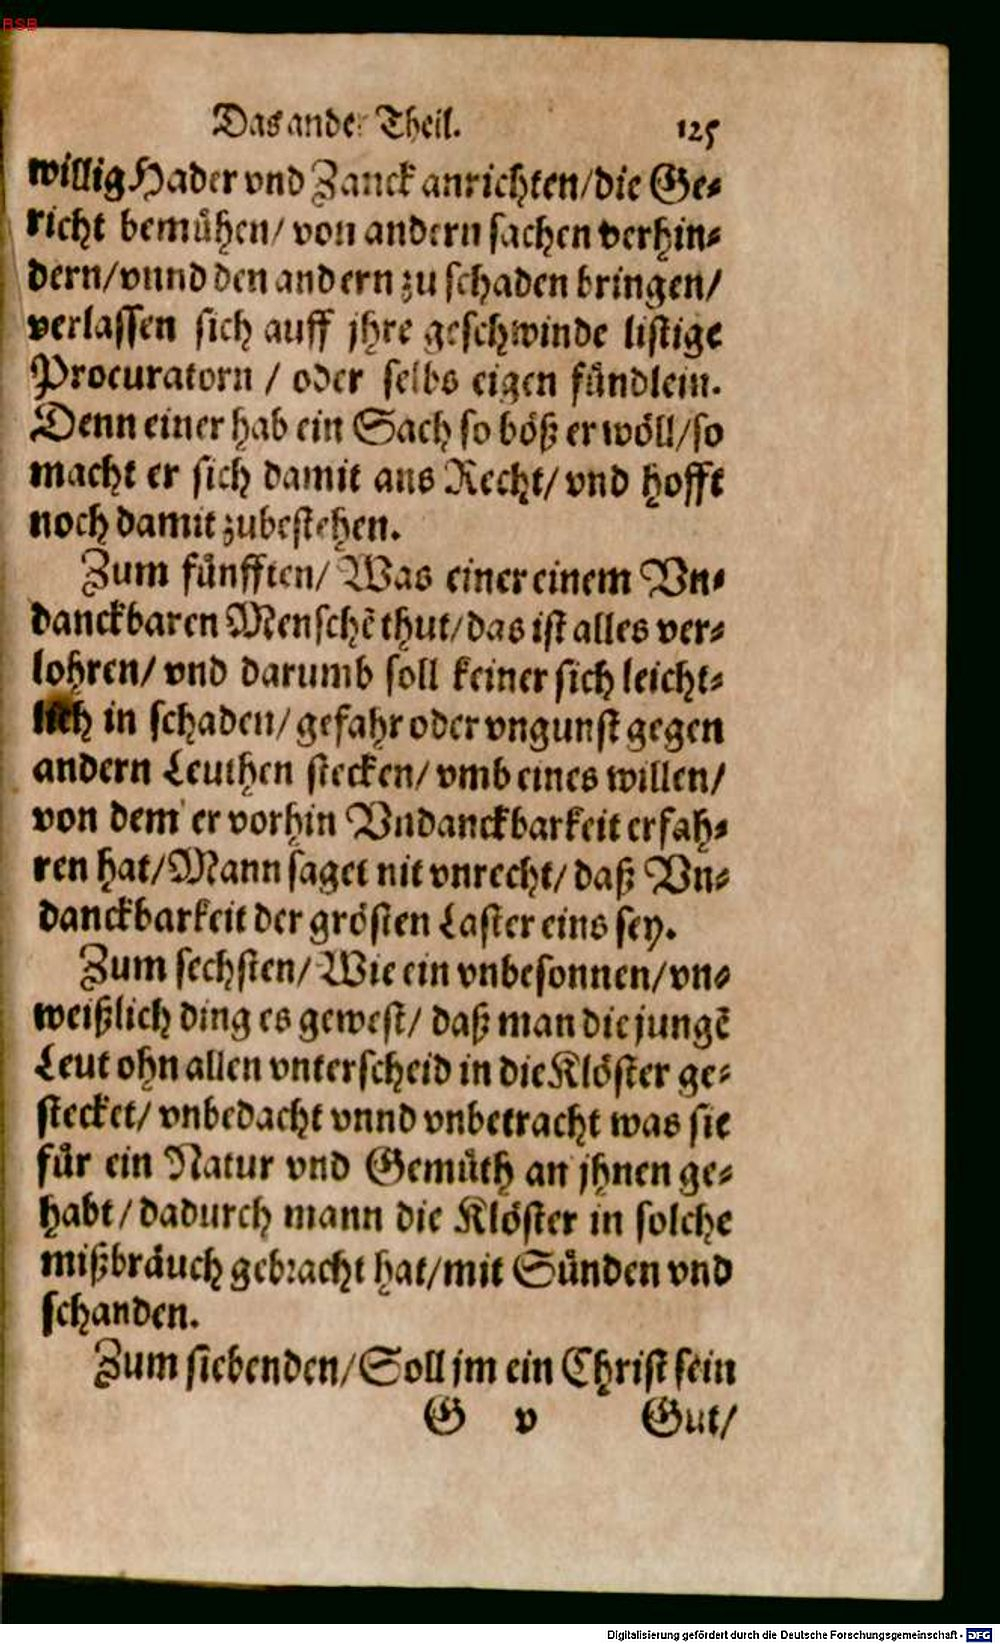 BSB
Das ander Theil. 125
willig Hader vnd Zanck anrichten/die Ge-
richt bemühen/ von andern sachen verhin-
dern/vnnd den andern zu schaden bringen/
verlassen sich auff jhre geschwinde listige
Procuratorn / oder selbs eigen fündlein.
Denn einer hab ein Sach so böß er wöll/so
macht er sich damit ans Recht/ vnd hofft
noch damit zubestehen.
Zum fünfften/ Was einer einem Vn-
danckbaren Menschẽ thut/das ist alles ver-
lohren/ vnd darumb soll keiner sich leicht-
lich in schaden/ gefahr oder vngunst gegen
andern Leuthen stecken/ vmb eines willen/
von dem er vorhin Vndanckbarkeit erfah-
ren hat/Mann saget nit vnrecht/ daß Vn-
danckbarkeit der grösten Laster eins sey.
Zum sechsten/ Wie ein vnbesonnen/ vn-
weißlich ding es gewest/ daß man die jungẽ
Leut ohn allen vnterscheid in die Klöster ge-
stecket/ vnbedacht vnnd vnbetracht was sie
für ein Natur vnd Gemüth an jhnen ge-
habt/ dadurch mann die Klöster in solche
mißbräuch gebracht hat/mit Sünden vnd
schanden.
Zum siebenden/ Soll jm ein Christ sein
G v Gut/
Digitalisierung gefördert durch die Deutsche Forschungsgemeinschaft - DFG